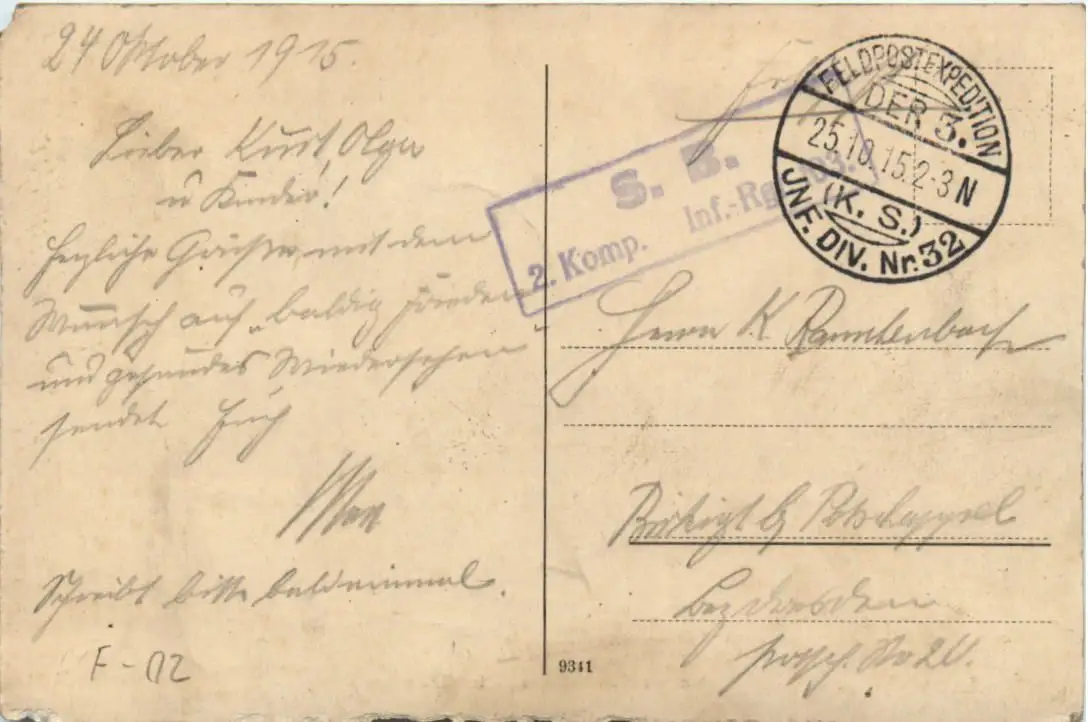 24 Oktober 1915.
Lieber Kurt, Olga
u Kinder!
Herzliche Grüße mit dem
Wunsch auf „baldig Frieden"
und gesundes Wiedersehen
sendet Euch
Max
Schreibt bitte bald einmal.
F-02
S. B.
2. Komp. Inf.-Rg. 103.
FELDPOSTEXPEDITION
DER 3.
25.10.15.2-3 N
(K. S.)
JNF. DIV. Nr. 32
Herrn K
Birkigt b Potschappel
Bez Dresden
No
9341